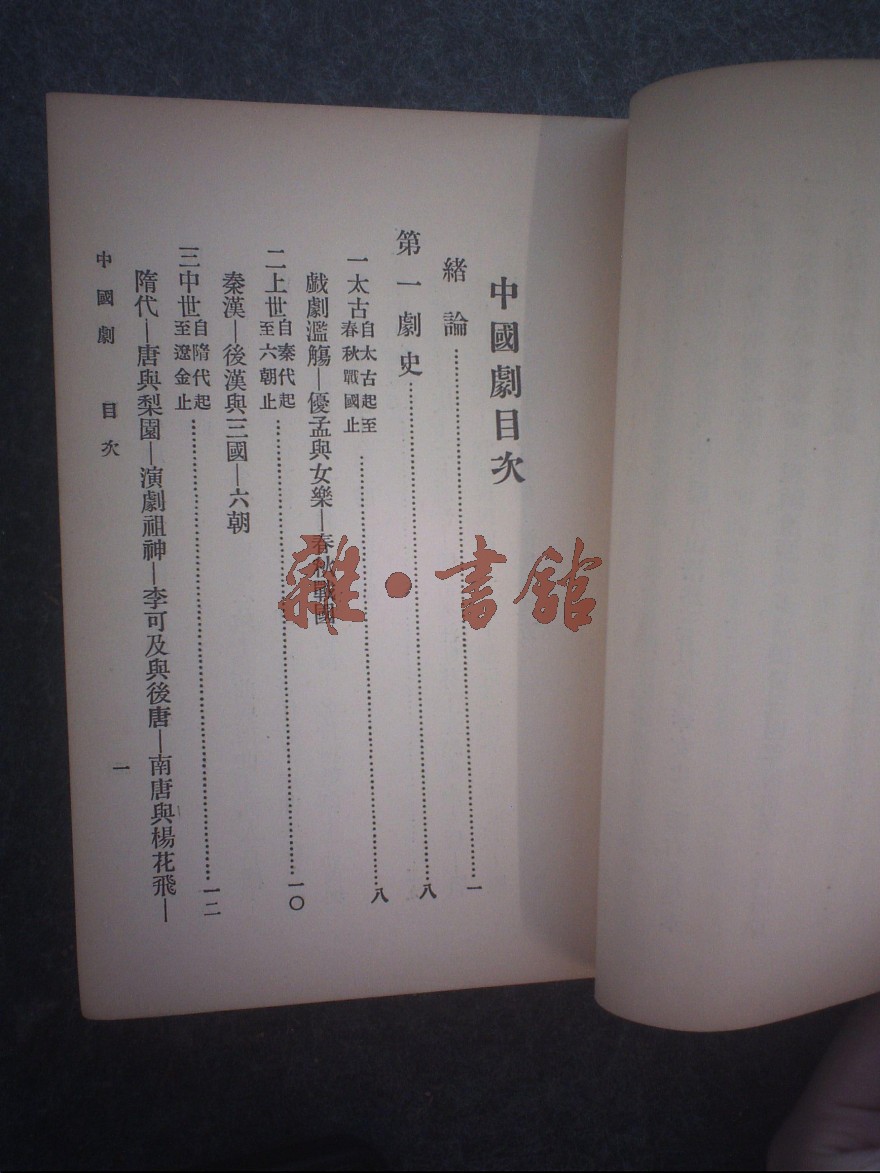 中國劇目次
緒論……一
第一劇史……八
一太古自太古起至春秋戰國止……八
戲劇濫觴—優孟與女樂—春秋戰國
二上世自秦代起至六朝止……一〇
秦漢—後漢與三國—六朝
三中世自隋代起至遼金止……一二
隋代—唐與梨園—演劇祖神—李可及與後唐—南唐與楊花飛—
中國劇 目次 一
雜·書館